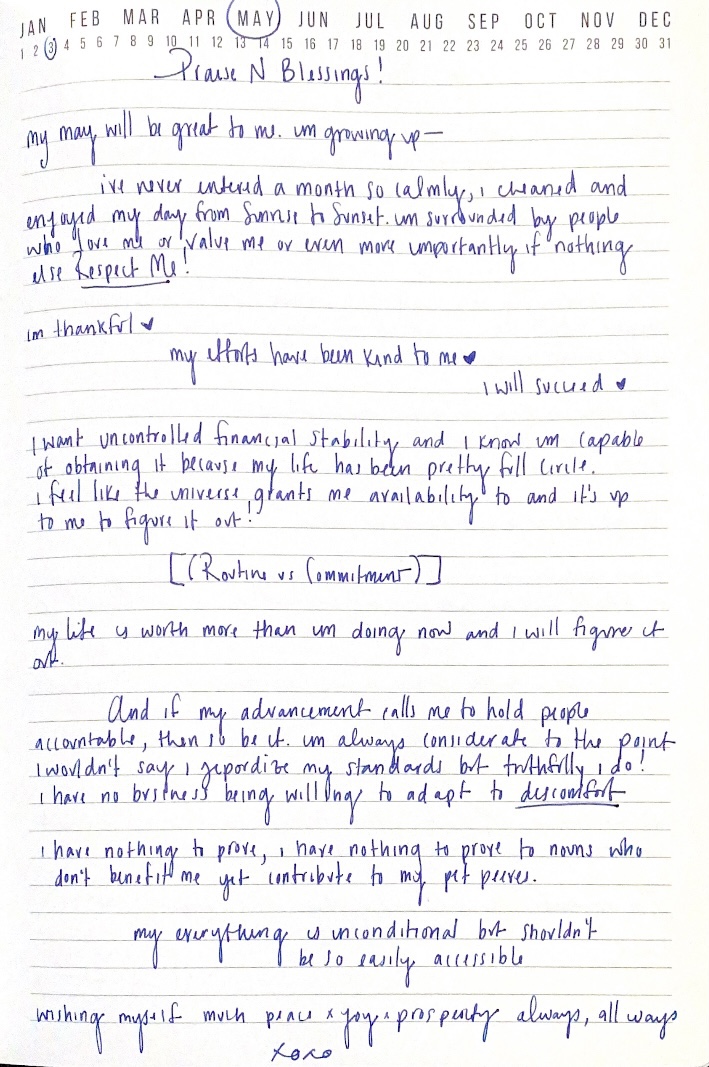 JAN FEB MAR APR MAY JUN JUL AUG SEP OCT NOV DEC
1 2 3 4 5 6 7 8 9 10 11 12 13 14 15 16 17 18 19 20 21 22 23 24 25 26 27 28 29 30 31
Praise N Blessings!
my may will be great to me. im growing up—
ive never entered a month so calmly, i cleaned and
enjoyed my day from Sunrise to Sunset. im surrounded by people
who love me or value me or even more importantly if nothing
else Respect Me!
im thankful ♥
my efforts have been kind to me ♥
I will succeed ♥
I want uncontrolled financial stability and I know im capable
of obtaining it because my life has been pretty full circle.
I feel like the universe grants me availability to and it's up
to me to figure it out!
[(Routine vs Commitment)]
my life is worth more than im doing now and I will figure it
out.
And if my advancement calls me to hold people
accountable, then so be it. im always considerate to the point
I wouldn't say I jepordize my standards but truthfully I do!
I have no business being willing to adapt to discomfort
I have nothing to prove, i have nothing to prove to nouns who
don't benefit me yet contribute to my pet peeves.
my everything is unconditional but shouldn't
be so easily accessible
wishing myself much peace x joy x prosperity always, all ways
xoxo